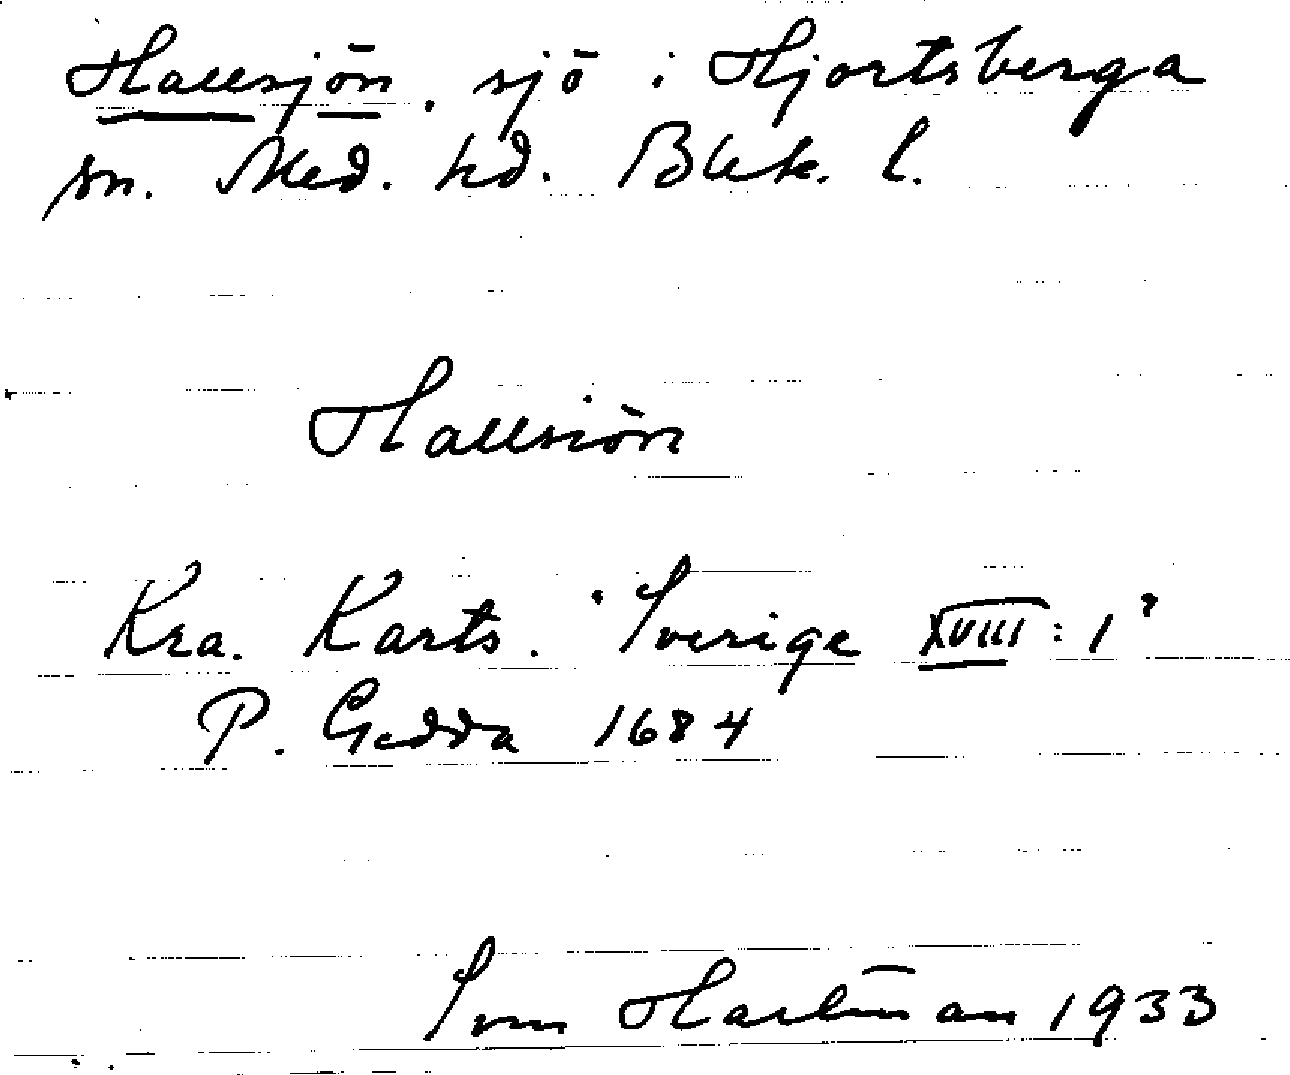 Hallsjön. sjö i Hjortsberga
sn. Med. hd. Blek. l.
Hallsiön
Kra. Karts. "Sverige XVIII: 1"
P. Gedda 1684
Sven Hartman 1933